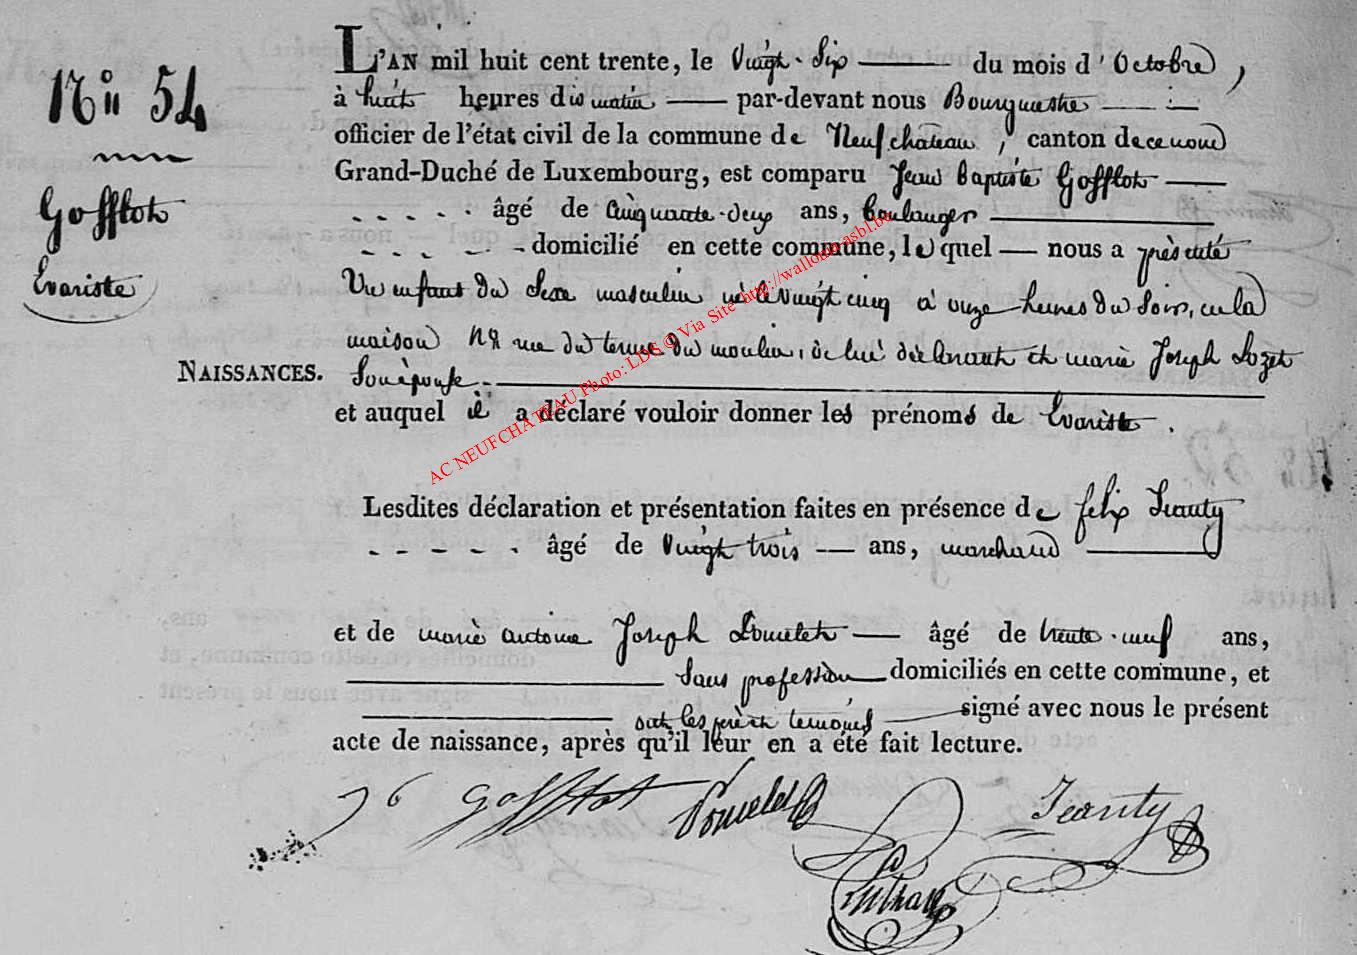 N° 54
Gofflot
Evariste
NAISSANCES.
L'AN mil huit cent trente, le Vingt-Six du mois d'Octobre,
à huit heures du matin par-devant nous Bourgmestre
officier de l'état civil de la commune de Neufchâteau, canton de ce nom
Grand-Duché de Luxembourg, est comparu Jean Baptiste Gofflot
âgé de Cinquante-deux ans, boulanger
domicilié en cette commune, lequel nous a présenté
Un enfant du Sexe masculin né le vingt cinq à onze heures du Soir, en la
maison N° 8 rue du terme du moulin, de lui déclarant et marie Joseph Lozet
Son épouse
et auquel il a déclaré vouloir donner les prénoms de Evariste.
Lesdites déclaration et présentation faites en présence de felix Jeanty
âgé de Vingt trois ans, marchand
et de marie antoine Joseph Pomelet âgé de trente-neuf ans,
Sans profession domiciliés en cette commune, et
ont les père et temoins signé avec nous le présent
acte de naissance, après qu'il leur en a été fait lecture.
JB Gofflot Pomelet Jeanty
AC NEUFCHATEAU Photo: LDS © Via Site http://wallonia-asbl.be